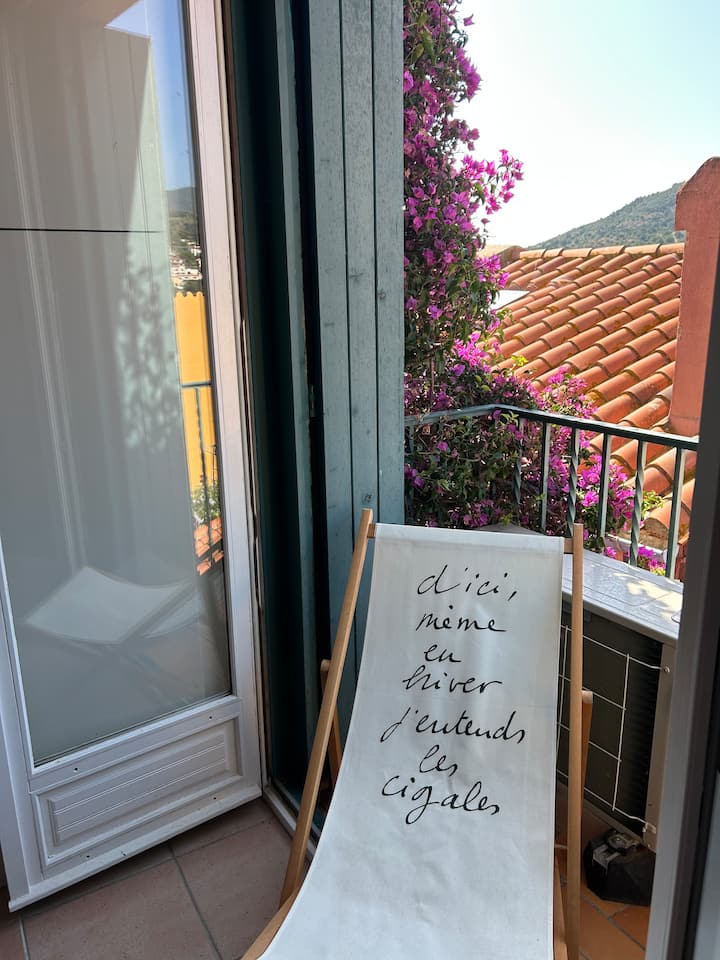 d'ici,
même
en
hiver
j'entends
les
cigales